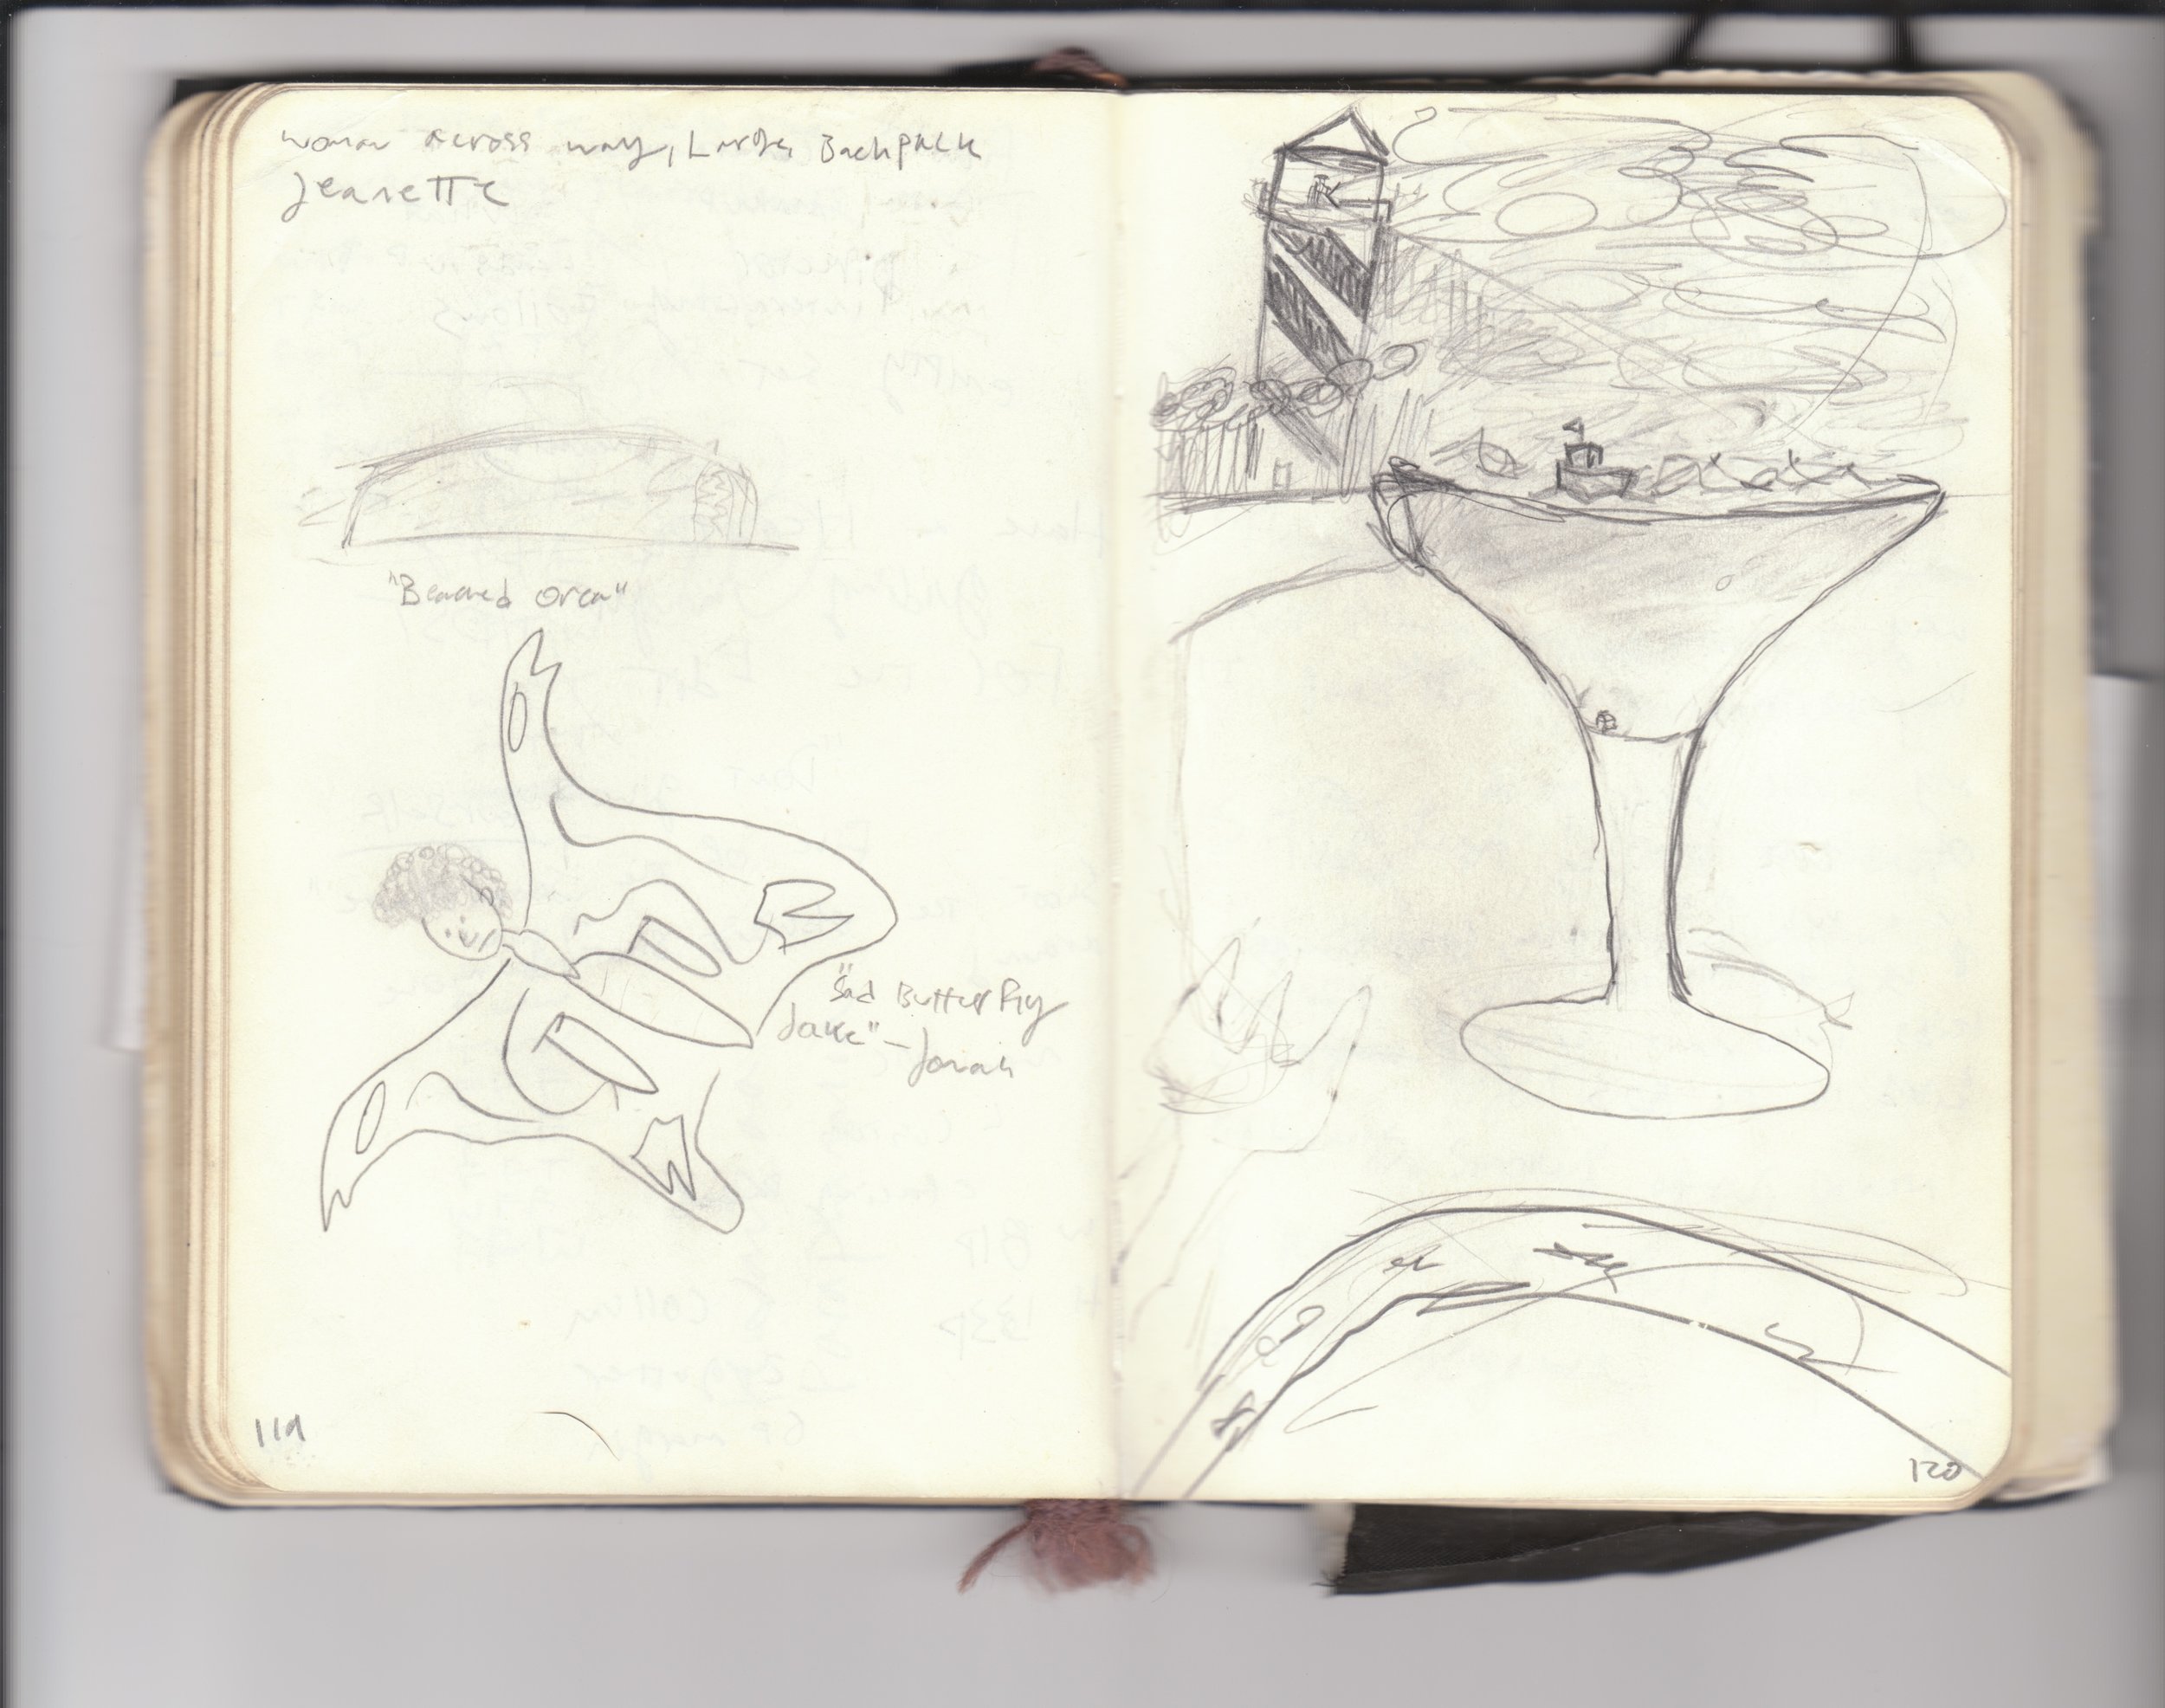 woman across way, Large Backpack
Jeanette
"Beached orca"
"Sad Butterfly
Jake" - Jonah
119
120